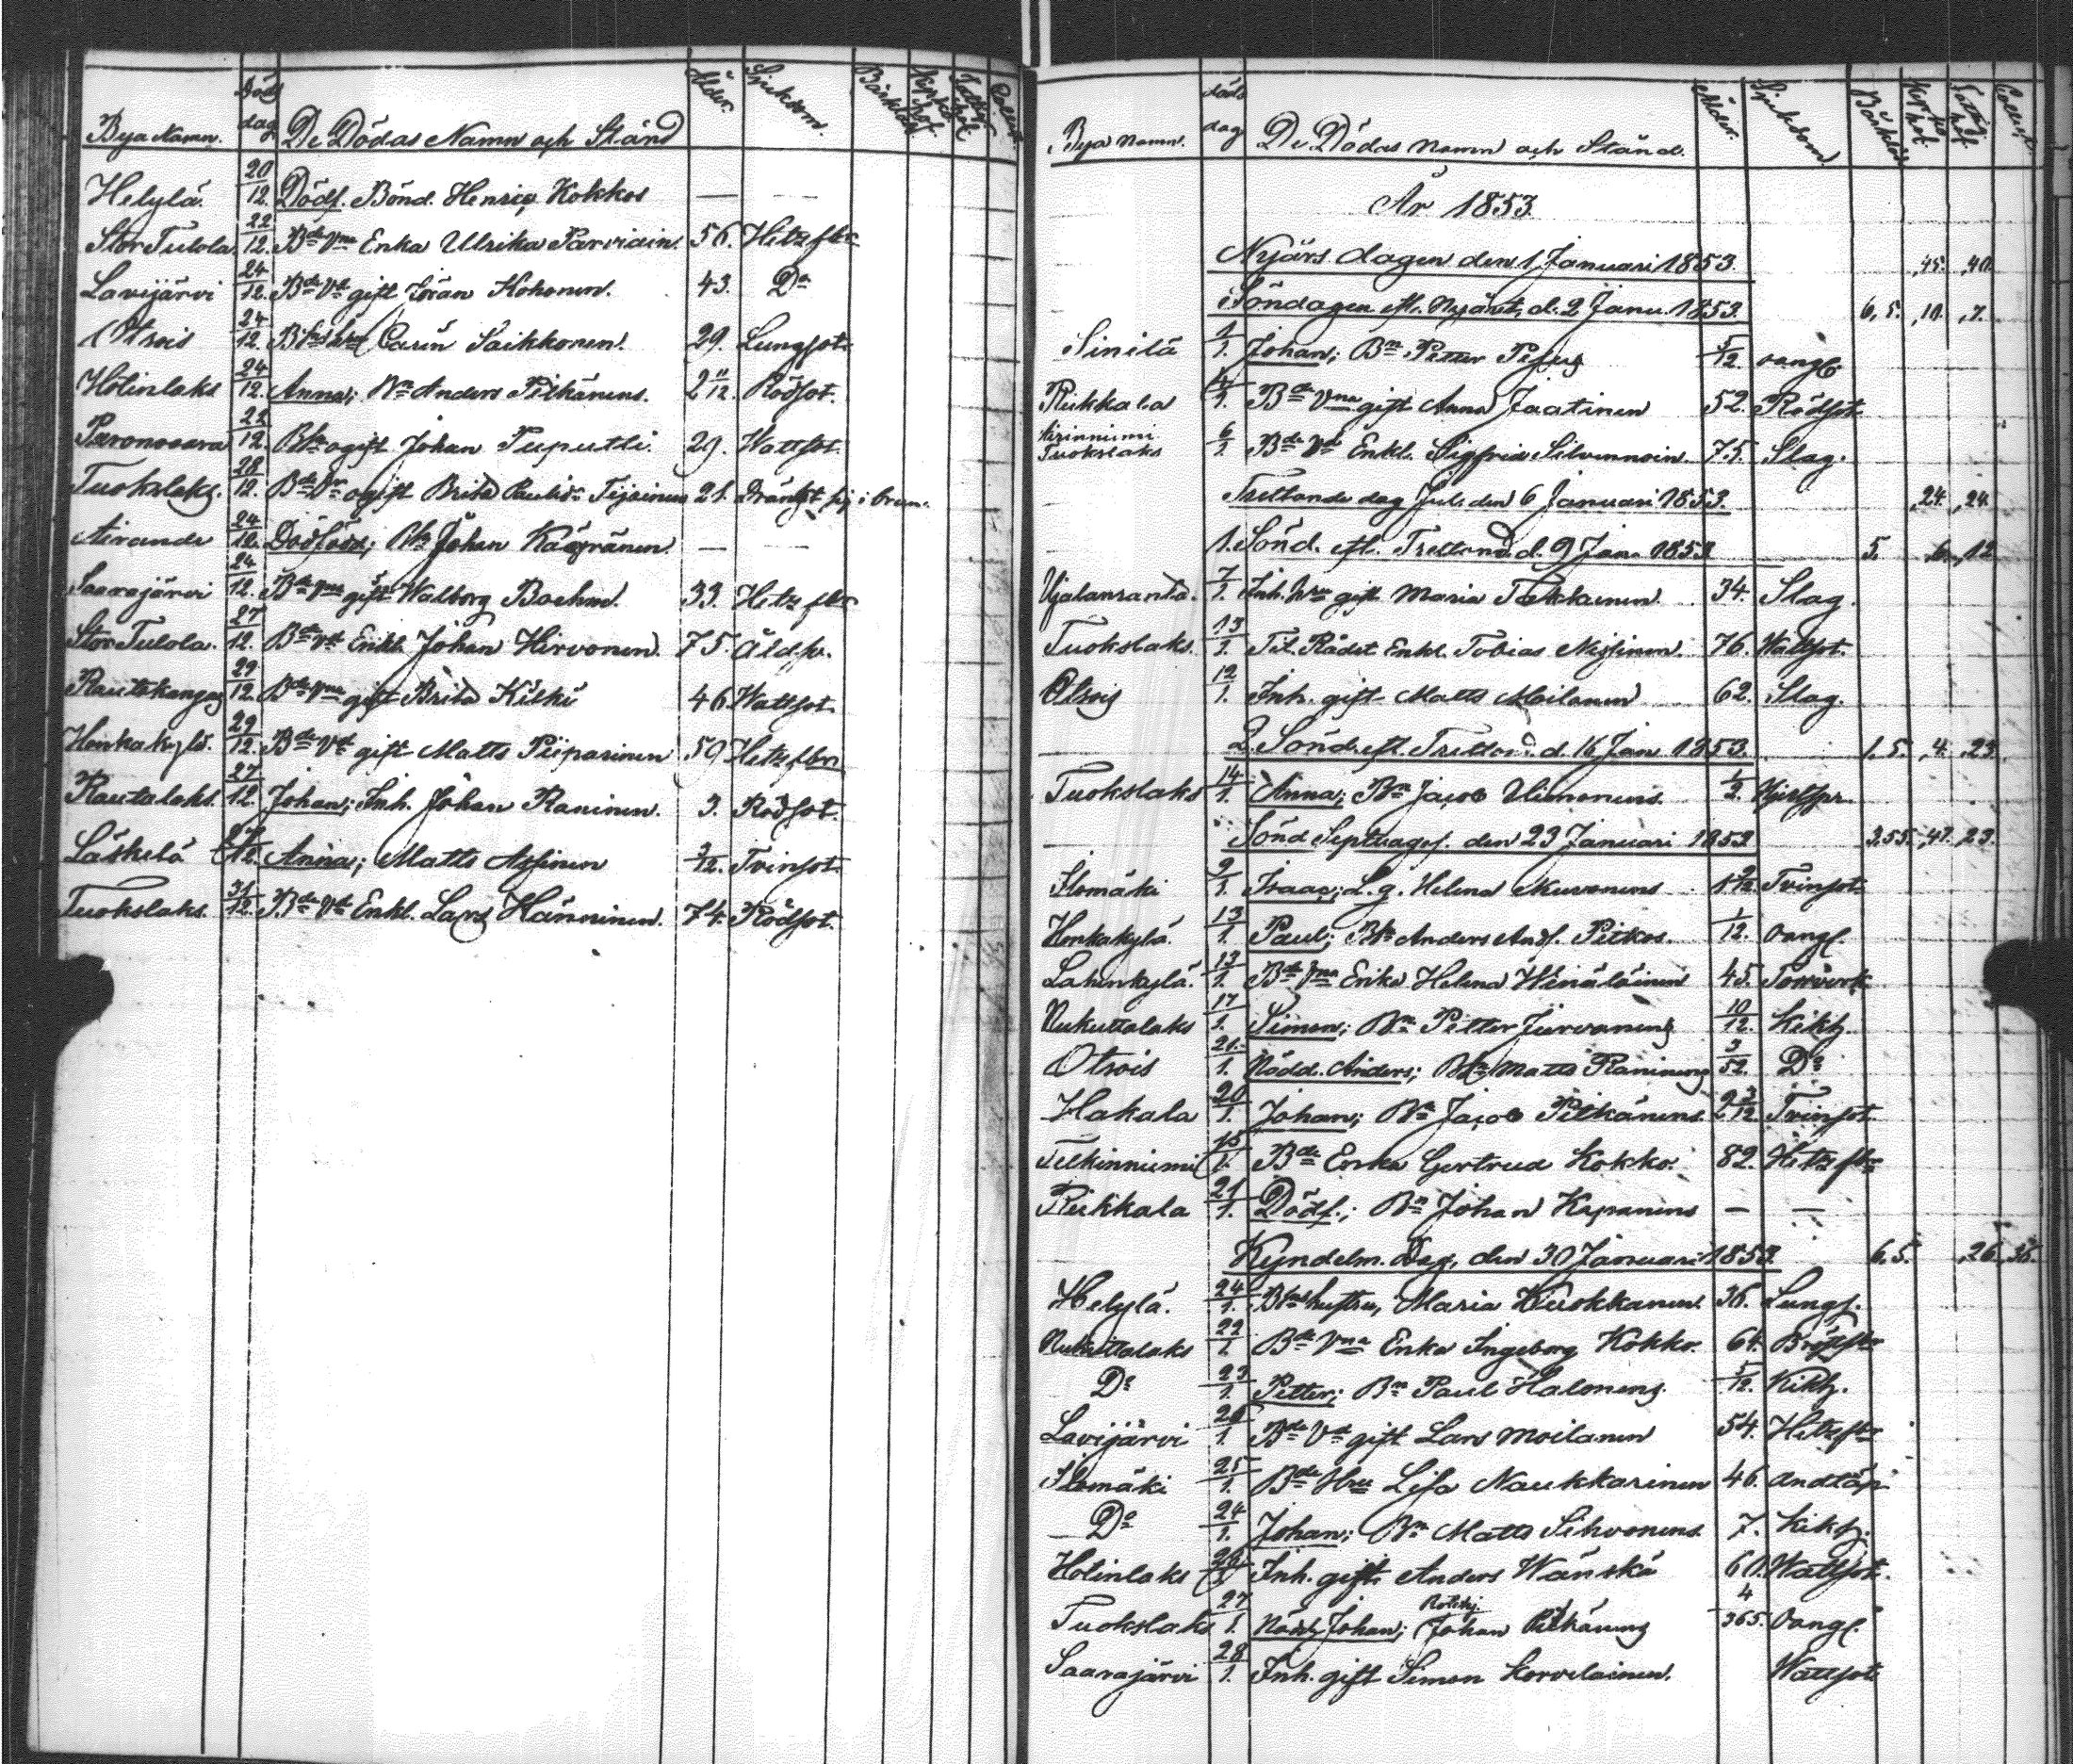 Bya Namn. Döds dag De Dödas Namn och Stånd Ålder. Sjukdom.
Helylä. 20/12. Dödf. Bond. Henric Kokkos — —
Stor Tulola. 22/12. Bde Vna Enka Ulrika Parviain. 56. Hetz fbr
Lavijärvi 24/12. Bde Vd gift Jöran Kohonen. 43. Do
Otsois 24/12. Carin Saikkonen. 29. Lungsot.
Hotinlaks 24/12. Anna; Bn Anders Pitkänens. 2 11/12. Rödsot.
Paronvaara 22/12. ogift Johan Tuputti. 29. Wattsot.
Tuokslaks. 28/12. Bde Dr ogift Brita Paulsdr Tijainen 21. Dränkt sig i brun.
Airanda 24/12. Dödfödd; Johan — —
Saarajärvi 24/12. Bde Vna gift Walborg Boehm. 33. Hetz fbr
Stor Tulola. 27/12. Bde Vd Enkl. Johan Hirvonen. 75. Åldsv.
Rautakangas 29/12. Bde Vna gift Brita Kilki 46. Wattsot.
Honkakylä. 29/12. Bde Vd gift Matts Piiparinen 59 Hetz fbr
Rautalaks. 27/12. Johan; Inh. Johan Raninen. 3. Rödsot.
Läskelä 27/12. Anna; Matts Assinen 3/12. Tvinsot.
Tuokslaks. 31/12. Bde Vd Enkl. Lars Hänninen. 74. Rödsot.
Bya Namn. döds dag De Dödas Namn och Stånd. Ålder. Sjukdom
År 1853.
Nyårs dagen den 1 Januari 1853. ,45. ,40.
Söndagen eft. Nyåret, d. 2 Janu. 1853. 6,5. ,10. ,7.
Sinilä 1/1. Johan; Bn Petter 5/12. oangf.
Riekkala 4/1. Bde Vna gift Anna Jaatinen 52. Rödsot.
Kirinniemi
Tuokslaks 6/1. Bde Vd Enkl. Sigfrid Silvennoin. 75. Slag.
Trettonde dag Jul. den 6 Januari 1853. ,24. ,24.
1. Sönd. eft. Trettond. d. 9 Jan. 1853. 5. 6. ,12
7/1. Inh. hru gift Maria 34. Slag.
Tuokslaks. 13/1. Enkl. Tobias 76. Wattsot.
Otsois 12/1. Inh. gift Matts Moilanen 62. Slag.
2. Sönd. eft. Tretton. d. 16 Jan. 1853. 1,5. ,4. ,23.
Tuokslaks 14/1. Anna; Bn Jacob Uimonens. 1/2. Hjertspr.
Sönd. Septuages. den 23 Januari 1853. 3,55. ,41. ,23.
Ilomäki 9/1. Isaac; L.g. Helena Muuronens 1 9/12. Tvinsot.
Honkakylä. 13/1. Paul; Anders Ands. Pitkos. 1/12. oangf.
Lahenkylä. 13/1. Bde Vna Enka Helena Winäläinen 45. Torrvärk.
Nukuttalaks 17/1. Simon; Bn Petter Järvonens 10/12. Kikh.
Otsois 21/1. Nödd. Anders; Matts Raninens 3/52. Do
Hakala 20/1. Johan; Bn Jacob Pitkänens 2 3/12. Tvinsot.
Telkinniemi 15/1. Bde Enka Gertrud Kokko. 82. Hetz fbr
Riekkala 21/1. Dödf.; Bn Johan Kapanens — —
Kyndelm. Dag, den 30 Januari 1853. 6,5. ,26. ,36.
Helylä. 24/1. hustru, Maria Kuokkanen. 36. Lungs.
Nukuttalaks 22/1. Bde Vna Enka Ingeborg Kokko. 64. Bröstfbr
Do 23/1. Petter; Bn Paul Halonens. 5/12. Kikh.
Lavijärvi 26/1. Bde Vd gift Lars Moilanen 54. Hetzfbr
Ilomäki 25/1. Bde Hru Lisa Naukkarinen 46. Andtäp.
Do 24/1. Johan; Bn Matts Sihvonens. 7. Kikh.
Hotinlaks Inh. gift Anders Wänskä 60. Wattsot.
Tuokslaks 27/1. Nödd. Johan; Johan Pitkänens 4/365. oangf.
Saarajärvi 28/1. Inh. gift Simon Korvelainen. Wattsot.